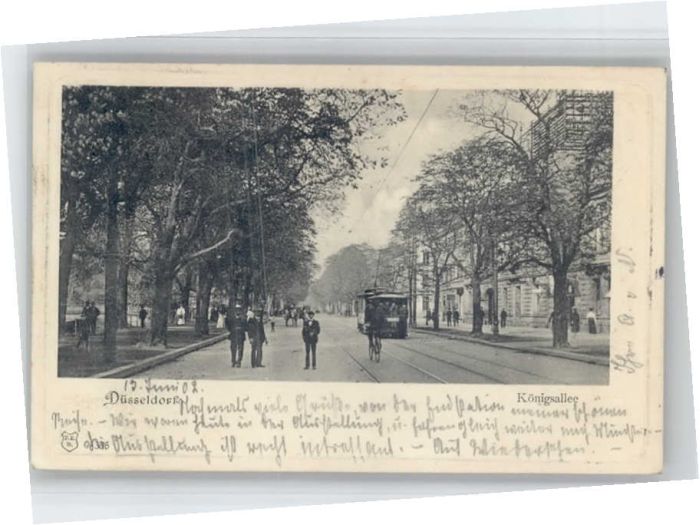 13. Juni 02.
Düsseldorf Königsallee
Nochmals viele Grüße, von der Endstation meiner schönen
Reise. - Wir waren heute in der Ausstellung, u. fahren gleich weiter nach
Die Ausstellung ist recht intressant. - Auf Wiedersehen. -